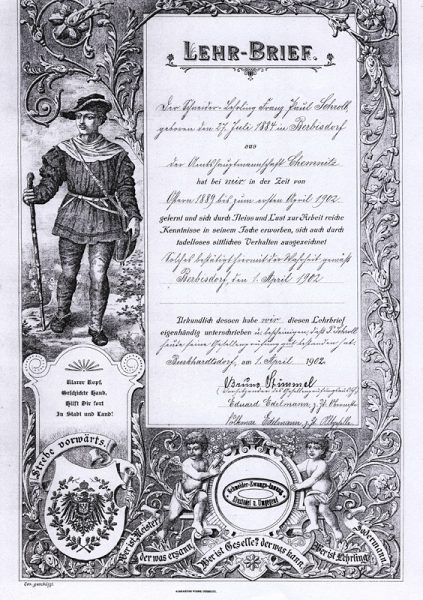 LEHR-BRIEF.
Der Schneider-Lehrling Franz Paul Schroth
geboren den 27. Juli 1884 in Berbisdorf
aus
der Amtshauptmannschaft Chemnitz
hat bei mir in der Zeit von
Ostern 1889 bis zum ersten April 1902
gelernt und sich durch Fleiss und Lust zur Arbeit reiche
Kenntnisse in seinem Fache erworben, sich auch durch
tadelloses sittliches Verhalten ausgezeichnet
Solches bestätigt hiermit der Wahrheit gemäss
Berbisdorf, den 1. April 1902
Urkundlich dessen habe wir diesen Lehrbrief
eigenhändig unterschrieben u. bescheinigen, daß P. Schroth
heute seine Gesellenprüfung gut bestanden hat.
Burkhardtsdorf, am 1. April 1902.
Bruno Stimmel
Vorsitzender des Gesellenprüfungs
Eduard Edelmann, z. Zt. Obermstr
Edelmann z. Zt.
Klarer Kopf,
Geschickte Hand,
Hilft Dir fort
In Stadt und Land!
Strebe vorwärts!
Schneider-Zwangs-Innung
u. Umgegend
Wer ist Meister?
der was ersann.
Wer ist Geselle?
der was kann.
Wer ist Lehrling?
Jedermann.
Ges. geschützt.